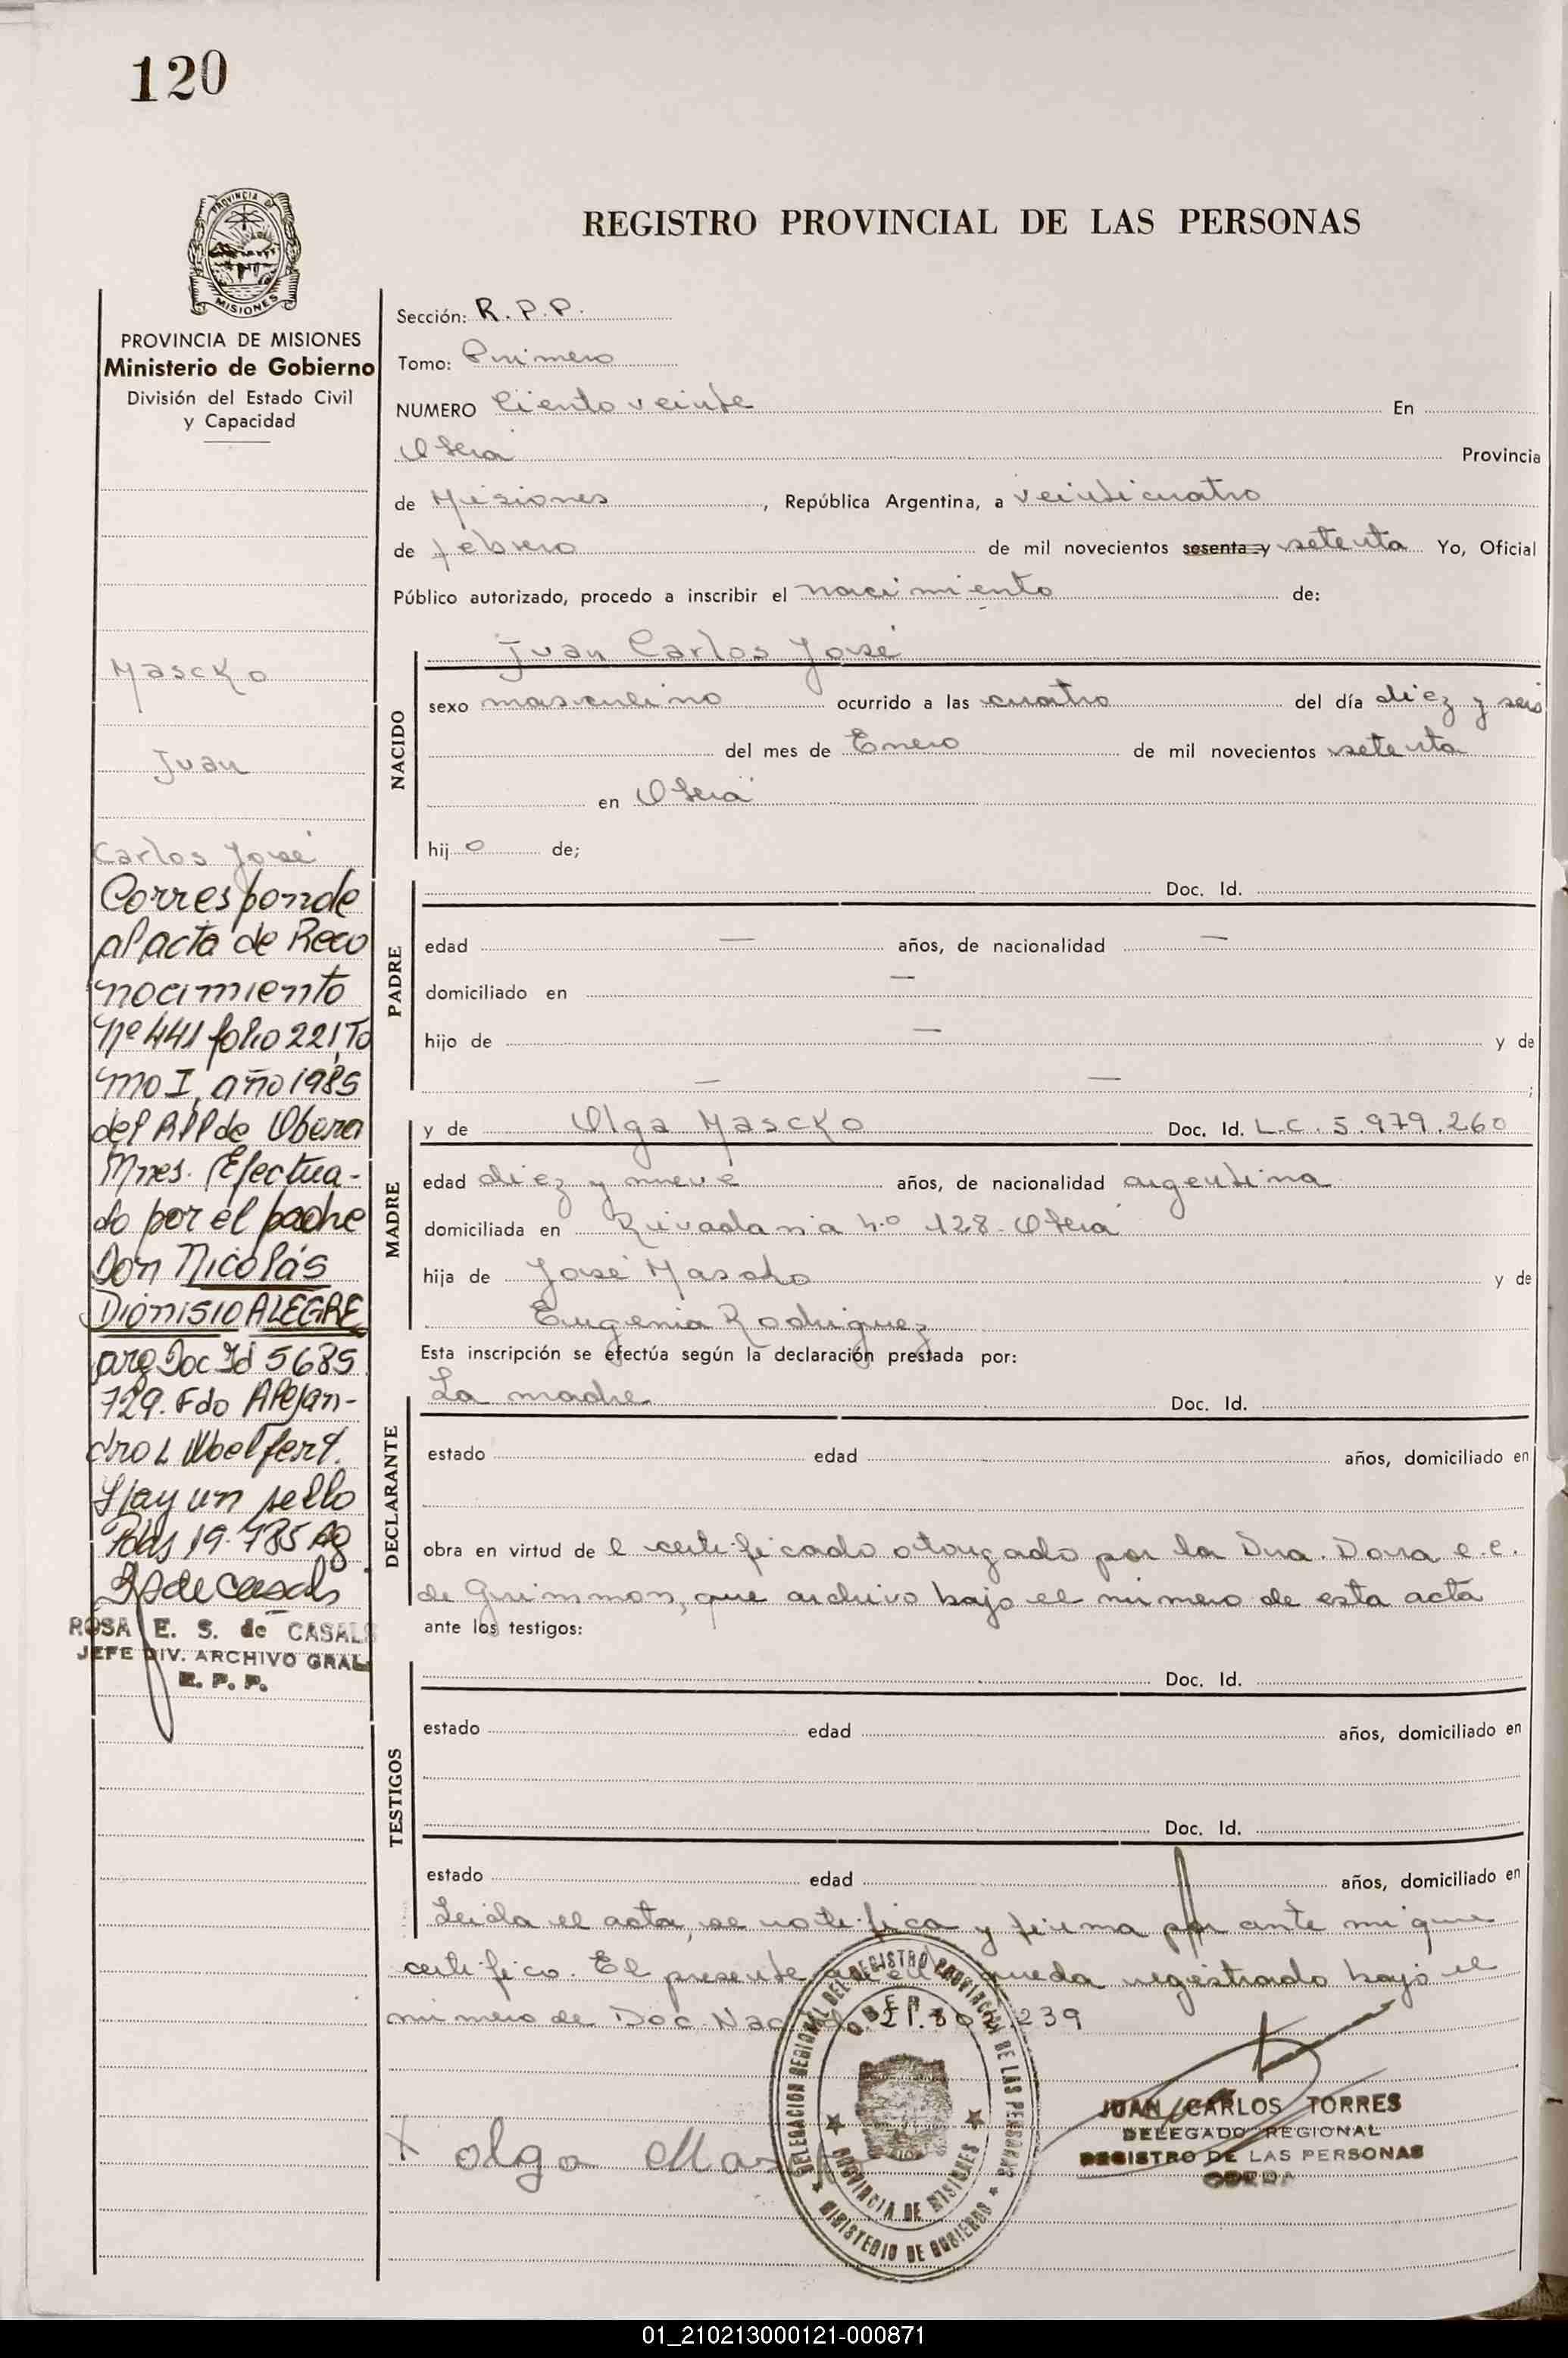 120
PROVINCIA DE
MISIONES
REGISTRO PROVINCIAL DE LAS PERSONAS
PROVINCIA DE MISIONES
Ministerio de Gobierno
División del Estado Civil
y Capacidad
Mascko
Juan
Carlos José
Corresponde
al acta de Reco
nocimiento
Nº 441 folio 221, To
mo I, año 1985
del RPP de Oberá
Mnes. Efectua-
do por el padre
Don Nicolás
Dionisio ALEGRE
arg Doc Id 5685
729. Fdo Alejan-
dro L Woelfert.
Hay un sello
Pdas 19.785 Ag
ROSA E. S. de CASALS
JEFE DIV. ARCHIVO GRAL
R. P. P.
Sección: R.P.P.
Tomo: Primero
NUMERO Ciento veinte En
Oberá Provincia
de Misiones, República Argentina, a veinticuatro
de febrero de mil novecientos sesenta y setenta Yo, Oficial
Público autorizado, procedo a inscribir el nacimiento de:
Juan Carlos José
NACIDO
sexo masculino ocurrido a las cuatro del día diez y seis
del mes de Enero de mil novecientos setenta
en Oberá
hij o de;
PADRE
Doc. Id.
edad — años, de nacionalidad —
domiciliado en —
hijo de — y de
— — ;
MADRE
y de Olga Mascko Doc. Id. L.C. 5.979.260
edad diez y nueve años, de nacionalidad argentina
domiciliada en Rivadavia nº 128 - Oberá
hija de José Mascko y de
Eugenia Rodriguez
Esta inscripción se efectúa según la declaración prestada por:
DECLARANTE
La madre Doc. Id.
estado edad años, domiciliado en
obra en virtud de el certificado otorgado por la Dra. Dora e.e.
de Grimmon, que archivo bajo el número de esta acta
ante los testigos:
TESTIGOS
Doc. Id.
estado edad años, domiciliado en
Doc. Id.
estado edad años, domiciliado en
Leida el acta, se notifica y firma por ante mi que
certifico. El presente queda registrado bajo el
número de Doc. Nac. 239
x Olga
DELEGACION REGIONAL DEL REGISTRO PROVINCIAL DE LAS PERSONAS
OBERA
PROVINCIA DE MISIONES
MINISTERIO DE GOBIERNO
JUAN CARLOS TORRES
DELEGADO REGIONAL
REGISTRO DE LAS PERSONAS
OBERA
01_210213000121-000871